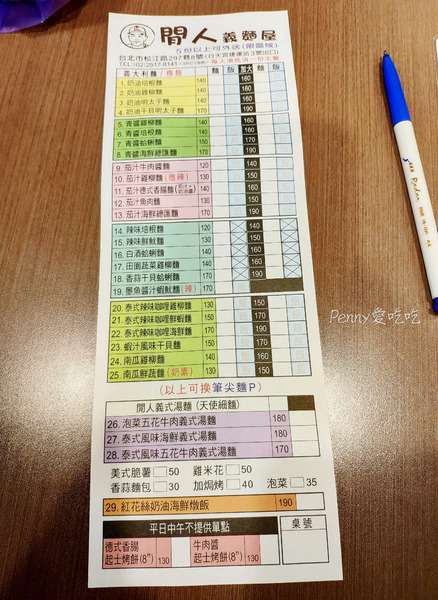 閒人義麵屋
5份以上可外送(限區域)
台北市松江路297巷8號(行天宮捷運站3號出口)
TEL:(02)2517-8141
每人須低消一份主餐
義大利麵/燉飯 麵 飯 加大 麵 飯
1. 奶油培根麵 140 160
2. 奶油雞柳麵 140 160
3. 奶油明太子麵 140 160
4. 奶油干貝明太子麵 170 190
5. 青醬雞柳麵 140 160
6. 青醬培根麵 140 160
7. 青醬蛤蜊麵 150 170
8. 青醬海鮮總匯麵 170 190
9. 茄汁牛肉醬麵 140 160
10. 茄汁雞柳麵(微辣) 130 150
11. 茄汁德式香腸麵 140 160
12. 茄汁魚肉麵 130 150
13. 茄汁海鮮總匯麵 170 190
14. 辣味培根麵 140 160
15. 辣味鮮魷麵 130 150
16. 白酒蛤蜊麵 140 160
17. 田園蔬菜雞柳麵 140 160
18. 香蒜干貝蛤蜊麵 170 190
19. 墨魚醬汁蝦魷麵(辣) 170
20. 泰式辣味咖哩雞柳麵 130 150
21. 泰式辣味咖哩鮮蝦麵 150 170
22. 泰式辣味咖哩海鮮麵 150 170
23. 蝦汁風味干貝麵 150 170
24. 南瓜雞柳麵 140 160
25. 南瓜鮮蔬麵(奶素) 130 150
(以上可換筆尖麵P)
閒人義式湯麵 (天使細麵)
26. 泡菜五花牛肉義式湯麵 180
27. 泰式風味海鮮義式湯麵 180
28. 泰式風味五花牛肉義式湯麵 170
美式脆薯 50 雞米花 50
香蒜麵包 30 加焗烤 40 泡菜 35
29. 紅花絲奶油海鮮燉飯 190
平日中午不提供單點 桌號
德式香腸 牛肉醬
起士烤餅(8") 130 起士烤餅(8") 130
Penny愛吃吃